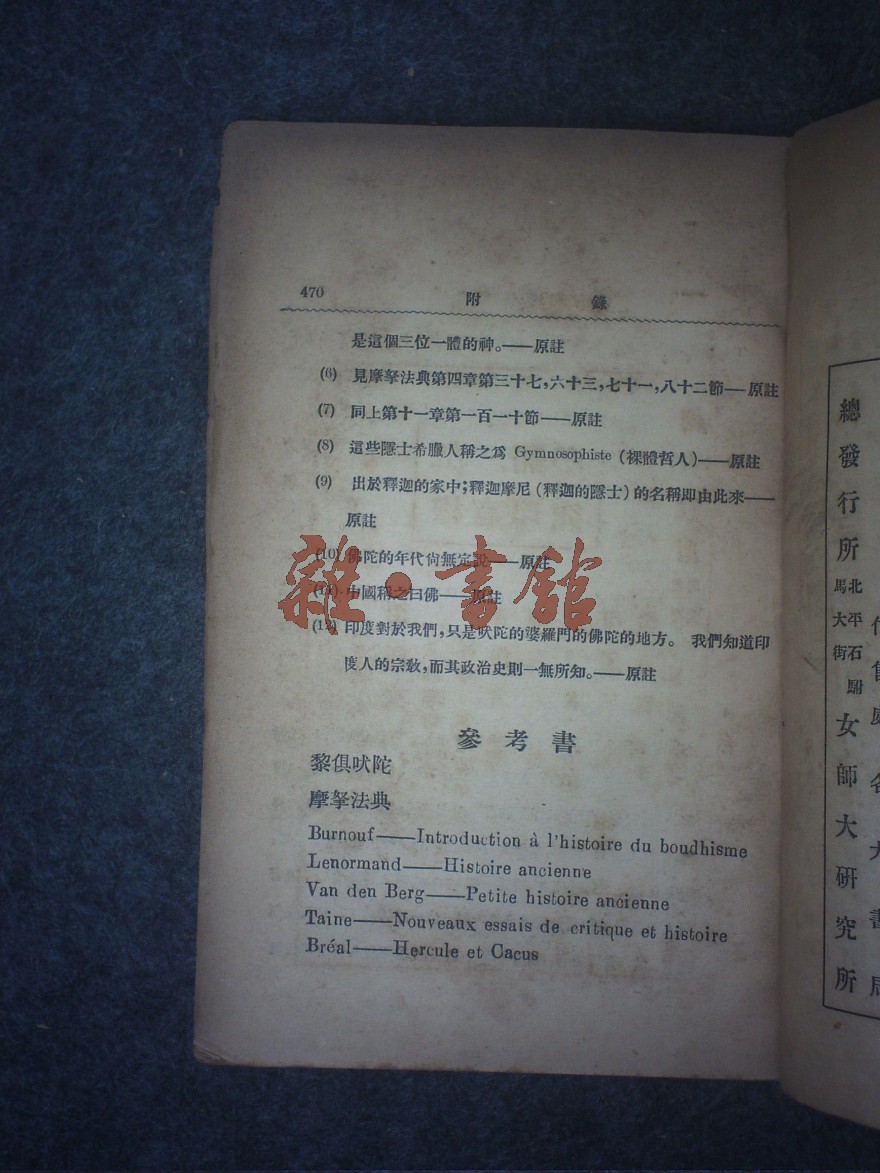 470 附錄
是這個三位一體的神。——原註
(6) 見摩拏法典第四章第三十七,六十三,七十一,八十二節——原註
(7) 同上第十一章第一百一十節——原註
(8) 這些隱士希臘人稱之爲 Gymnosophiste (裸體哲人)——原註
(9) 出於釋迦的家中;釋迦摩尼(釋迦的隱士)的名稱即由此來——
原註
(10) 佛陀的年代尙無定說——原註
(11) 中國稱之曰佛——原註
(12) 印度對於我們,只是吠陀的婆羅門的佛陀的地方。 我們知道印
度人的宗敎,而其政治史則一無所知。——原註
雜·書館
參考書
黎俱吠陀
摩拏法典
Burnouf——Introduction à l'histoire du boudhisme
Lenormand——Histoire ancienne
Van den Berg——Petite histoire ancienne
Taine——Nouveaux essais de critique et histoire
Bréal——Hercule et Cacus
總發行所 北平石駙馬大街 女師大研究所
各大書局